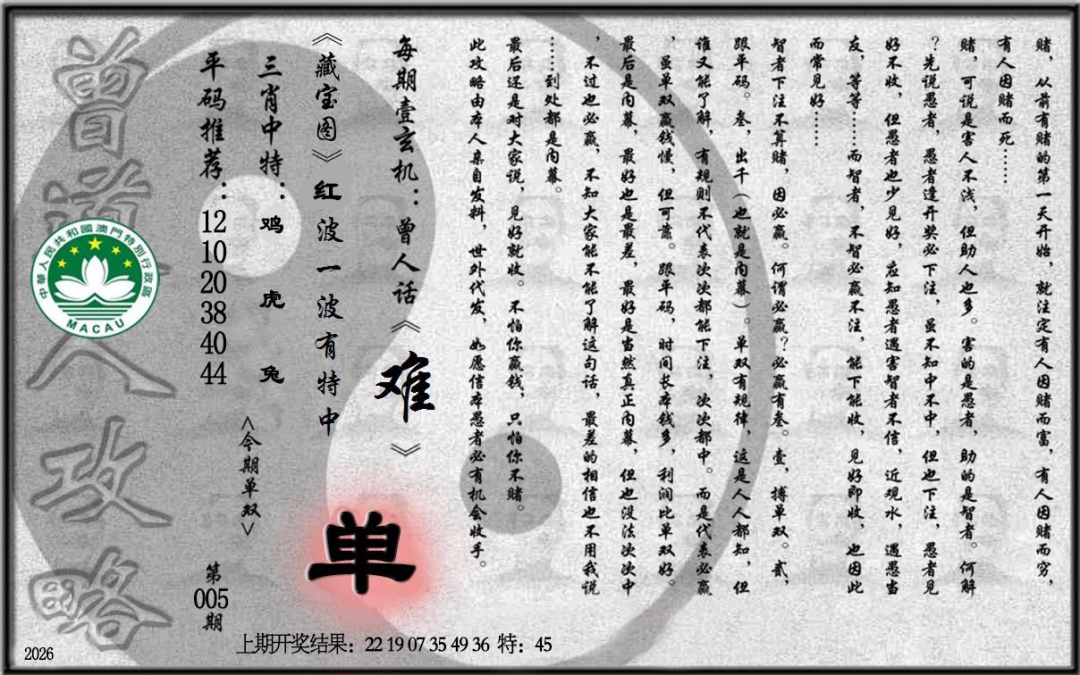 赌，从前有赌的第一天开始，就注定有人因赌而富，有人因赌而穷，
有人因赌而死……
赌，可说是害人不浅，但助人也多。害的是愚者，助的是智者。何解
？先说愚者，愚者逢开奖必下注，虽不知中不中，但也下注，愚者见
好不收，但愚者也少见好，应知愚者遇害智者不信，近观水，遇愚当
友，等等……而智者，不智必赢不注，能下能收，见好即收，也因此
而常见好……
智者下注不算赌，因必赢。何谓必赢？必赢有叁。壹，搏单双。贰，
跟单码。叁，出千（也就是内幕）。单双有规律，这是人人都知，但
谁又能了解，有规则不代表次次都能下注，次次都中。而是代表必赢
，虽单双赢钱慢，但可靠。跟单码，时间长本钱多，利润比单双好。
最后是内幕，最好也是最差，最好是当然真正内幕，但也没法次次中
，不过也必赢，不知大家能不能了解这句话，最差的相信也不用我说
……到处都是内幕。
最后还是对大家说，见好就收。不怕你赢钱，只怕你不赌。
此攻略由本人亲自发料，世外代发，如愿信本愚者必有机会收手。
每期壹玄机：曾人话《难》
《藏宝图》红波一波有特中
三肖中特：鸡 虎 兔
平码推荐：12 10 20 38 40 44
<今期单双>
单
第005期
曾道人攻略
中華人民共和國澳門特別行政區
MACAU
上期开奖结果：22 19 07 35 49 36 特：45
2026